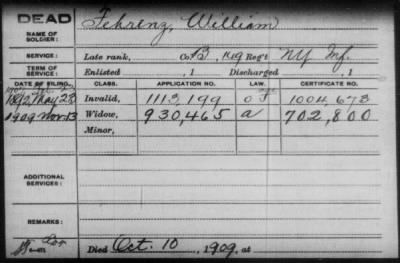 DEAD
NAME OF SOLDIER: Fehrenz, William
SERVICE: Late rank, Co. B, 119 Reg't NY Inf.
TERM OF SERVICE: Enlisted , 1 Discharged , 1
DATE OF FILING. CLASS. APPLICATION NO. LAW. CERTIFICATE NO.
1892, May 28 Invalid, 1113,199 1004,673
1909 Nov. 13 Widow, 930,465 a 702,800
Minor,
ADDITIONAL SERVICES:
REMARKS:
Died Oct. 10, 1909, at